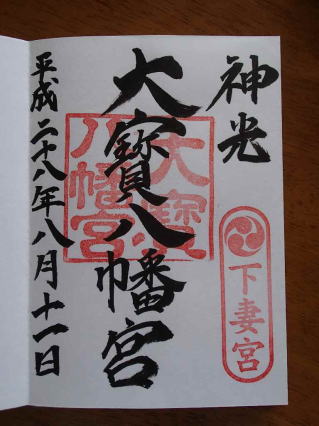 神光
下妻宮
大寳八幡宮
大寳八幡宮
平成二十八年八月十一日